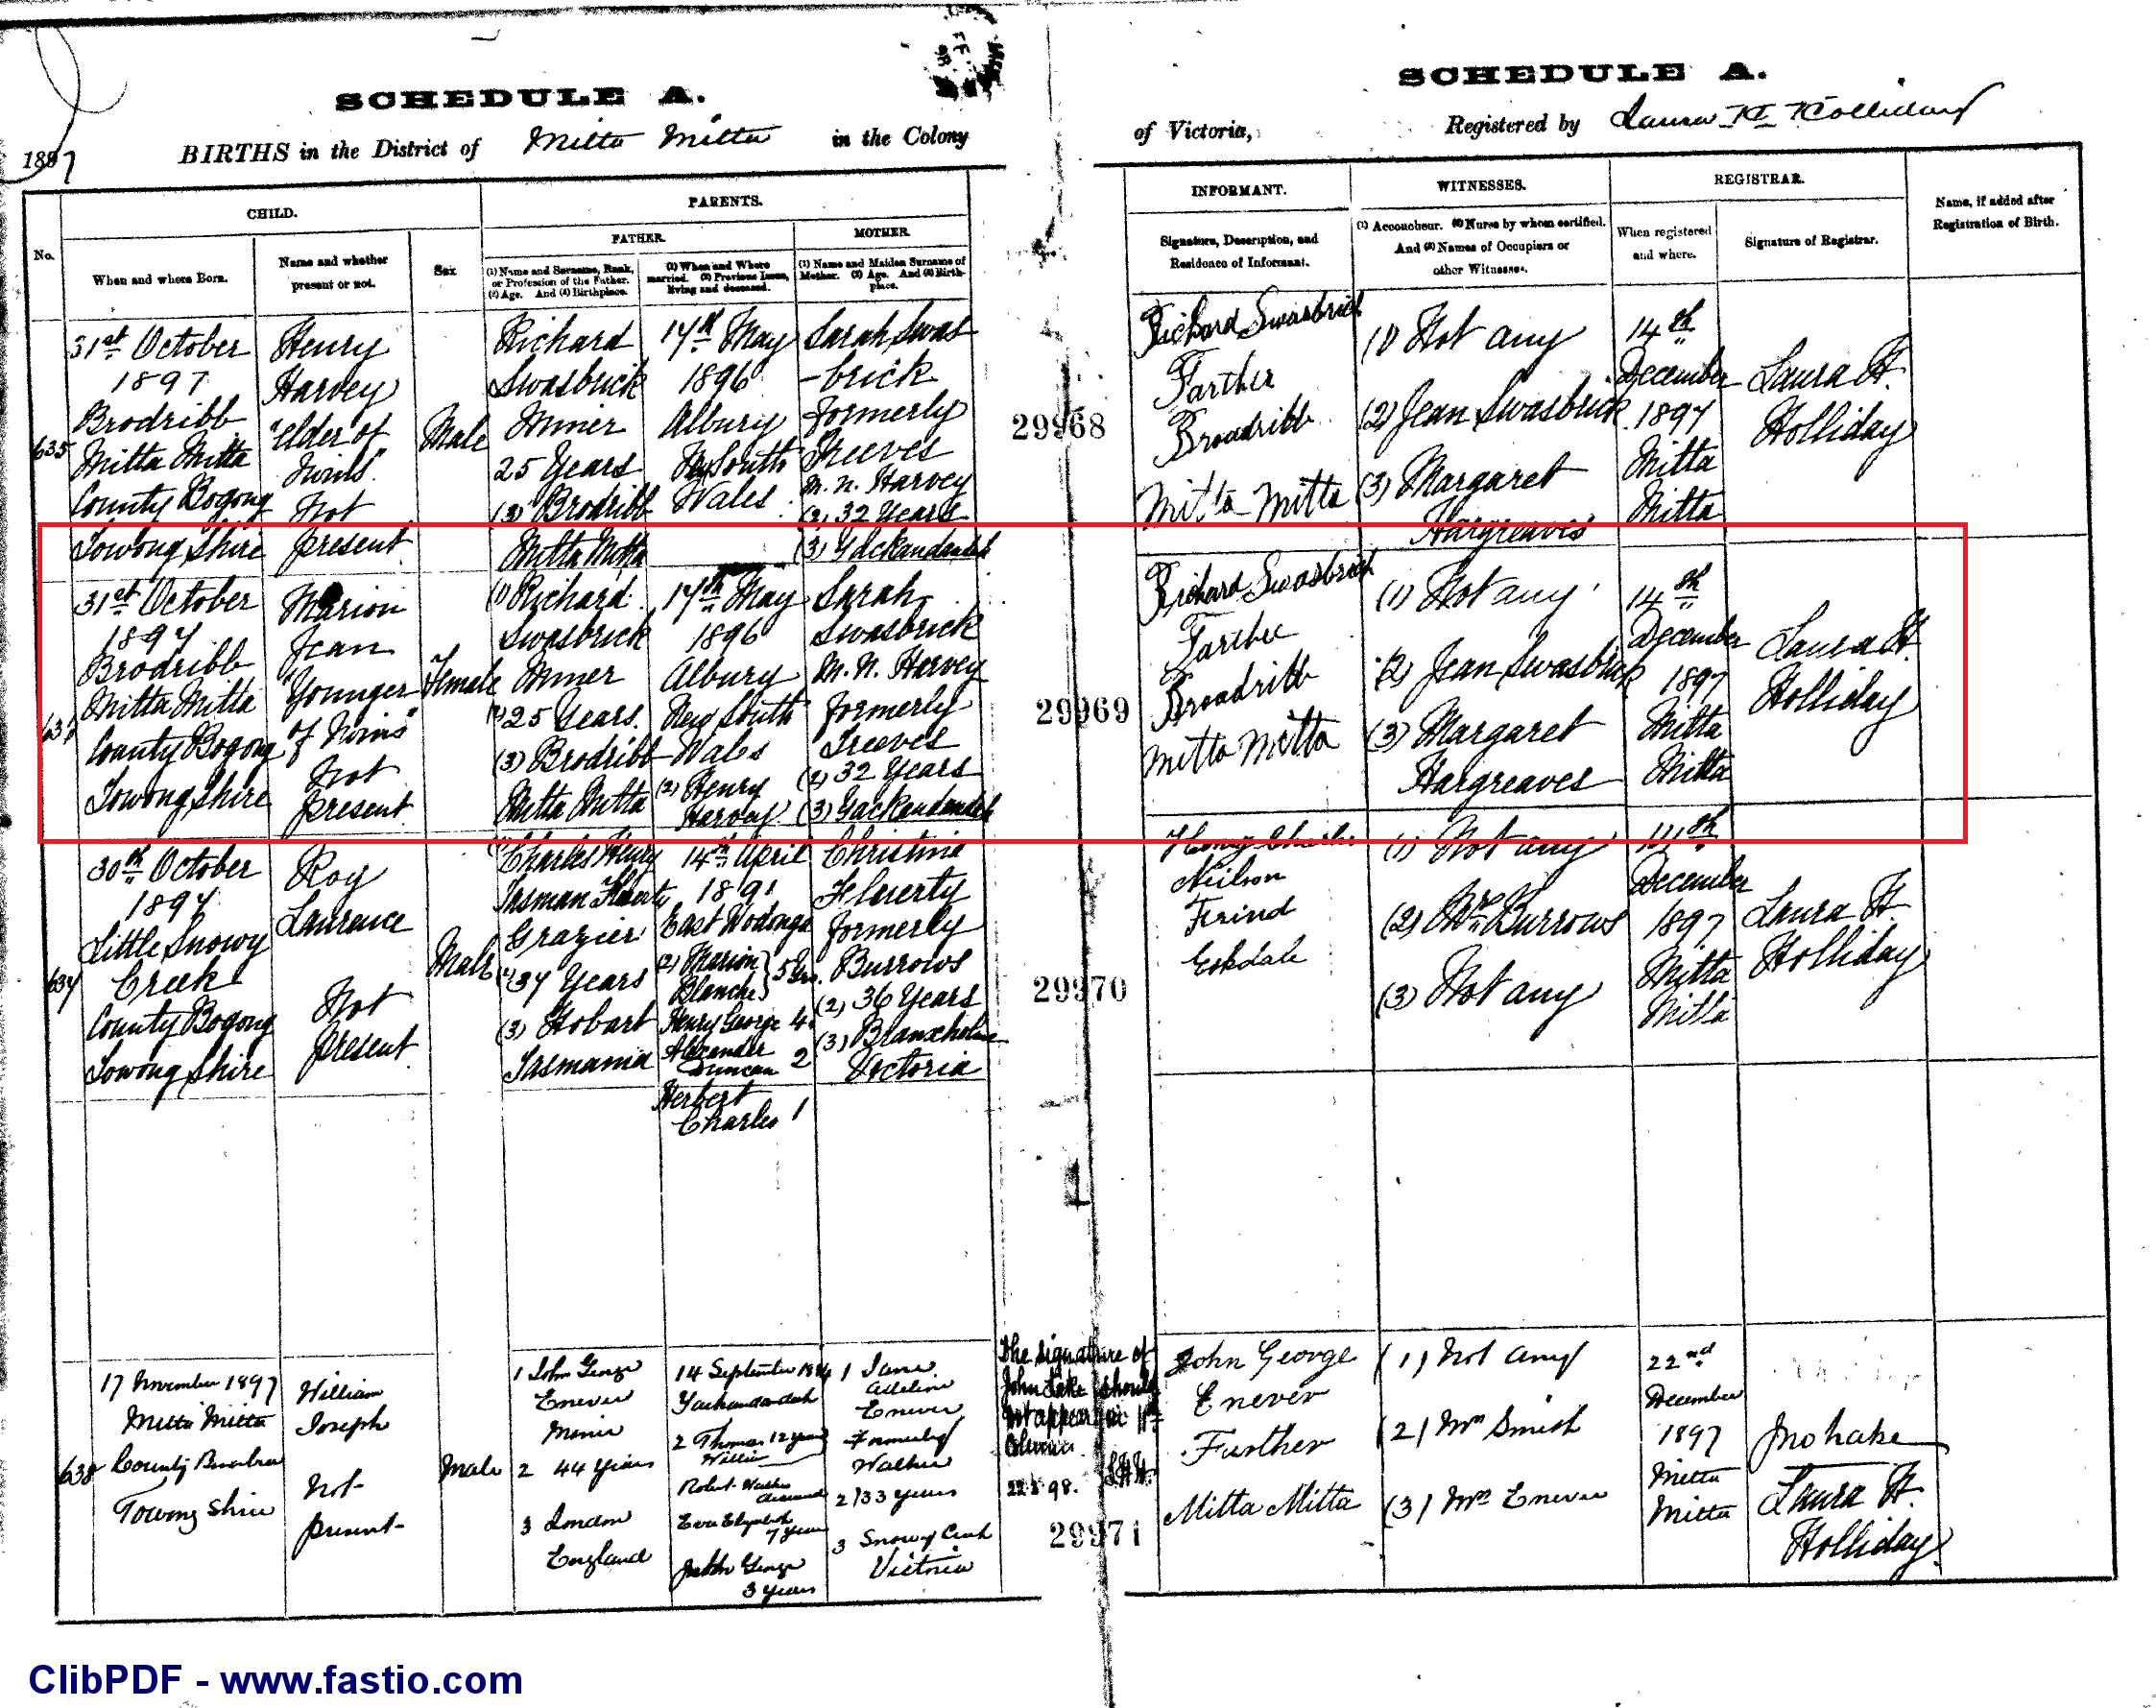 SCHEDULE A.
BIRTHS in the District of Mitta Mitta in the Colony
1897
SCHEDULE A.
of Victoria, Registered by Laura H Holliday
No.
CHILD.
When and where Born.
Name and whether
present or not.
Sex
PARENTS.
FATHER
(1) Name and Surname, Rank,
or Profession of the Father.
(2) Age. And (3) Birthplace.
(1) When and Where
married. (2) Previous Issue,
living and deceased.
MOTHER
(1) Name and Maiden Surname of
Mother. (2) Age. And (3) Birth-
place.
INFORMANT.
Signature, Description, and
Residence of Informant.
WITNESSES.
(1) Accoucheur. (2) Nurse by whom certified.
And (3) Names of Occupiers or
other Witnesses.
REGISTRAR.
When registered
and where.
Signature of Registrar.
Name, if added after
Registration of Birth.
635
31st October
1897
Brodribb
Mitta Mitta
County Bogong
Towong Shire
Henry
Harvey
"Elder of
Twins"
Not
present
Male
Richard
Swasbrick
Miner
25 Years
(3) Brodribb
Mitta Mitta
17th May
1896
Albury
New South
Wales
Sarah Swas
-brick
formerly
Treeves
M.N. Harvey
(2) 32 Years
(3) Yackandandah
29968
Richard Swasbrick
Farther
Broadribb
Mitta Mitta
(1) Not any
(2) Jean Swasbrick
(3) Margaret
Hargreaves
14th
December
1897
Mitta
Mitta
Laura H.
Holliday
636
31st October
1897
Brodribb
Mitta Mitta
County Bogong
Towong Shire
Marion
Jean
"Younger
of Twins"
Not
present
Female
(1) Richard
Swasbrick
Miner
(2) 25 Years
(3) Brodribb
Mitta Mitta
17th May
1896
Albury
New South
Wales
(2) Henry
Harvey
Sarah
Swasbrick
M.N. Harvey
formerly
Treeves
(2) 32 Years
(3) Yackandandah
29969
Richard Swasbrick
Farther
Broadribb
Mitta Mitta
(1) Not any
(2) Jean Swasbrick
(3) Margaret
Hargreaves
14th
December
1897
Mitta
Mitta
Laura H.
Holliday
637
30th October
1897
Little Snowy
Creek
County Bogong
Towong Shire
Roy
Laurence
Not
present
Male
Charles Henry
Tasman
Grazier
(2) 37 Years
(3) Hobart
Tasmania
14th April
1891
East Wodonga
(2) Marion
Blanche } 5 Yrs.
Henry George 4
Alexander
Duncan 2
Herbert
Charles 1
Christina
Flaherty
formerly
Burrows
(2) 36 Years
(3) Branxholme
Victoria
29970
Henry Charles
Neilson
Frind
Eskdale
(1) Not any
(2) Mrs Burrows
(3) Not any
14th
December
1897
Mitta
Mitta
Laura H.
Holliday
638
17 November 1897
Mitta Mitta
County
Towong Shire
William
Joseph
Not
present
Male
1 John George
Enever
Miner
2 44 years
3 London
England
14 September
Yackandandah
2 Thomas 12 years
Robert
deceased
Eva Elizabeth
7 years
George
3 years
1 Jane
Adeline
Enever
Formerly
Walker
2) 33 years
3 Snowy Creek
Victoria
The signature of
John Lake should
not appear in
22.2.98. L.H.H.
29971
John George
Enever
Further
Mitta Mitta
(1) Not any
(2) Mrs Smith
(3) Mrs Enever
22nd
December
1897
Mitta
Mitta
Jno Lake
Laura H.
Holliday
ClibPDF - www.fastio.com